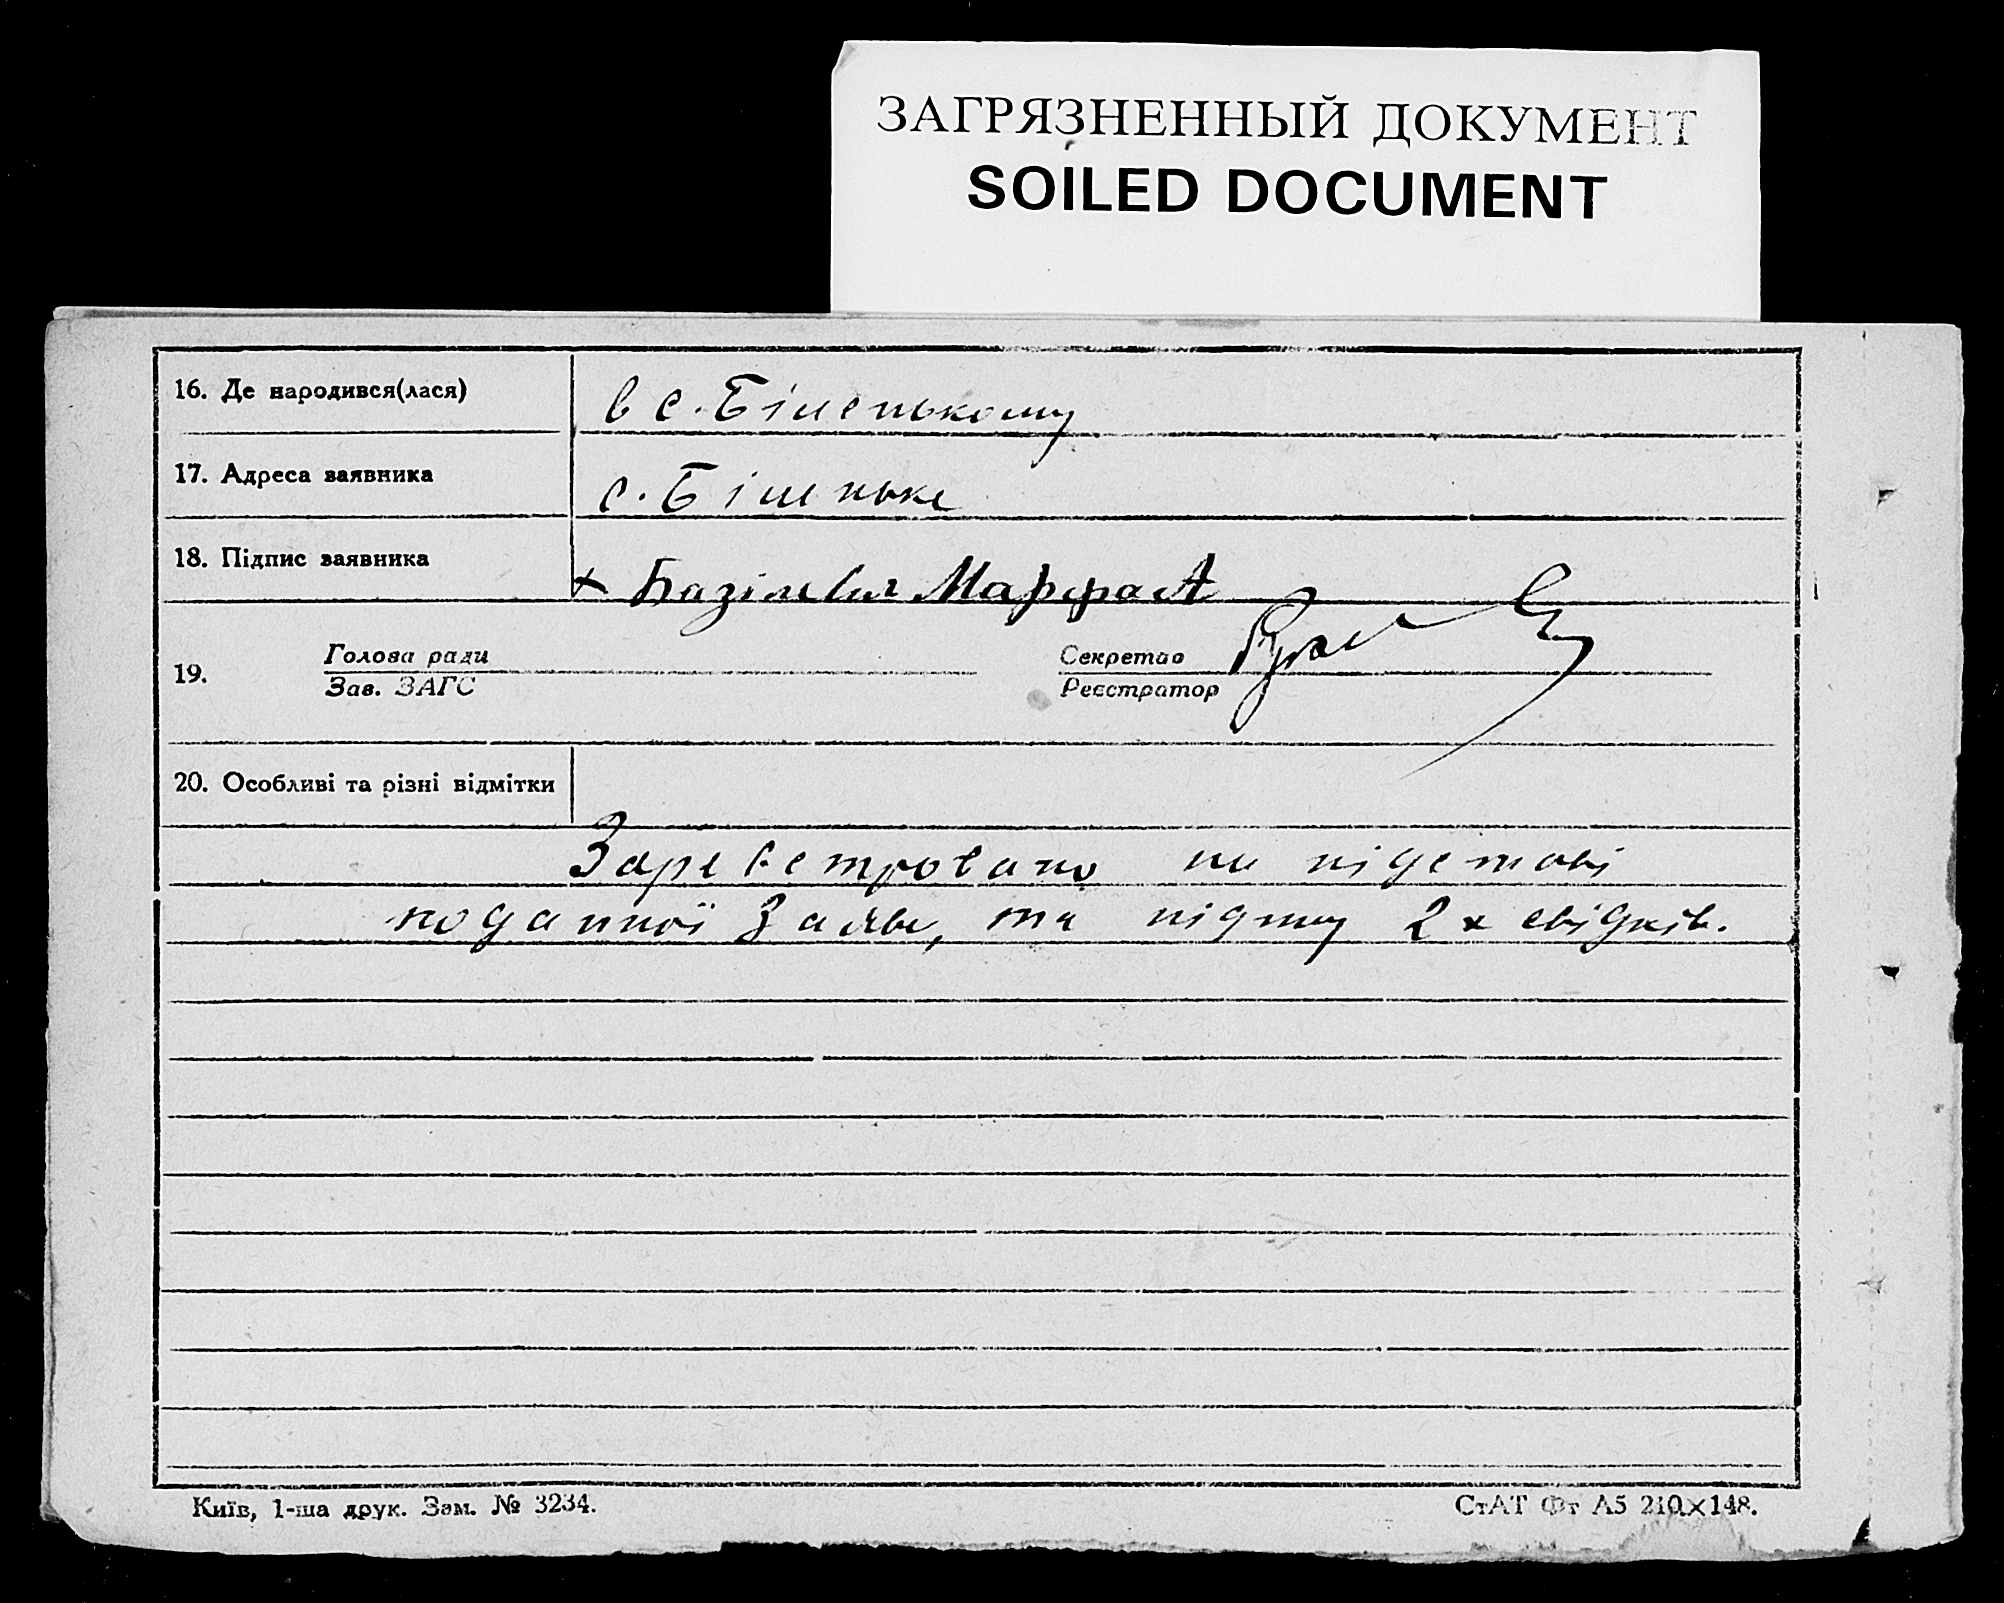 ЗАГРЯЗНЕННЫЙ ДОКУМЕНТ
SOILED DOCUMENT
16. Де народився(лася)
в с. Біленькому
17. Адреса заявника
с. Біленьке
18. Підпис заявника
х Базілевич Марфа А
19.
Голова ради
Зав. ЗАГС
Секретар
Реєстратор
20. Особливі та різні відмітки
на підставі
поданної заяви, та підпису 2х свідків.
Київ, 1-ша друк. Зам. № 3234.
СтАТ Фт А5 210×148.